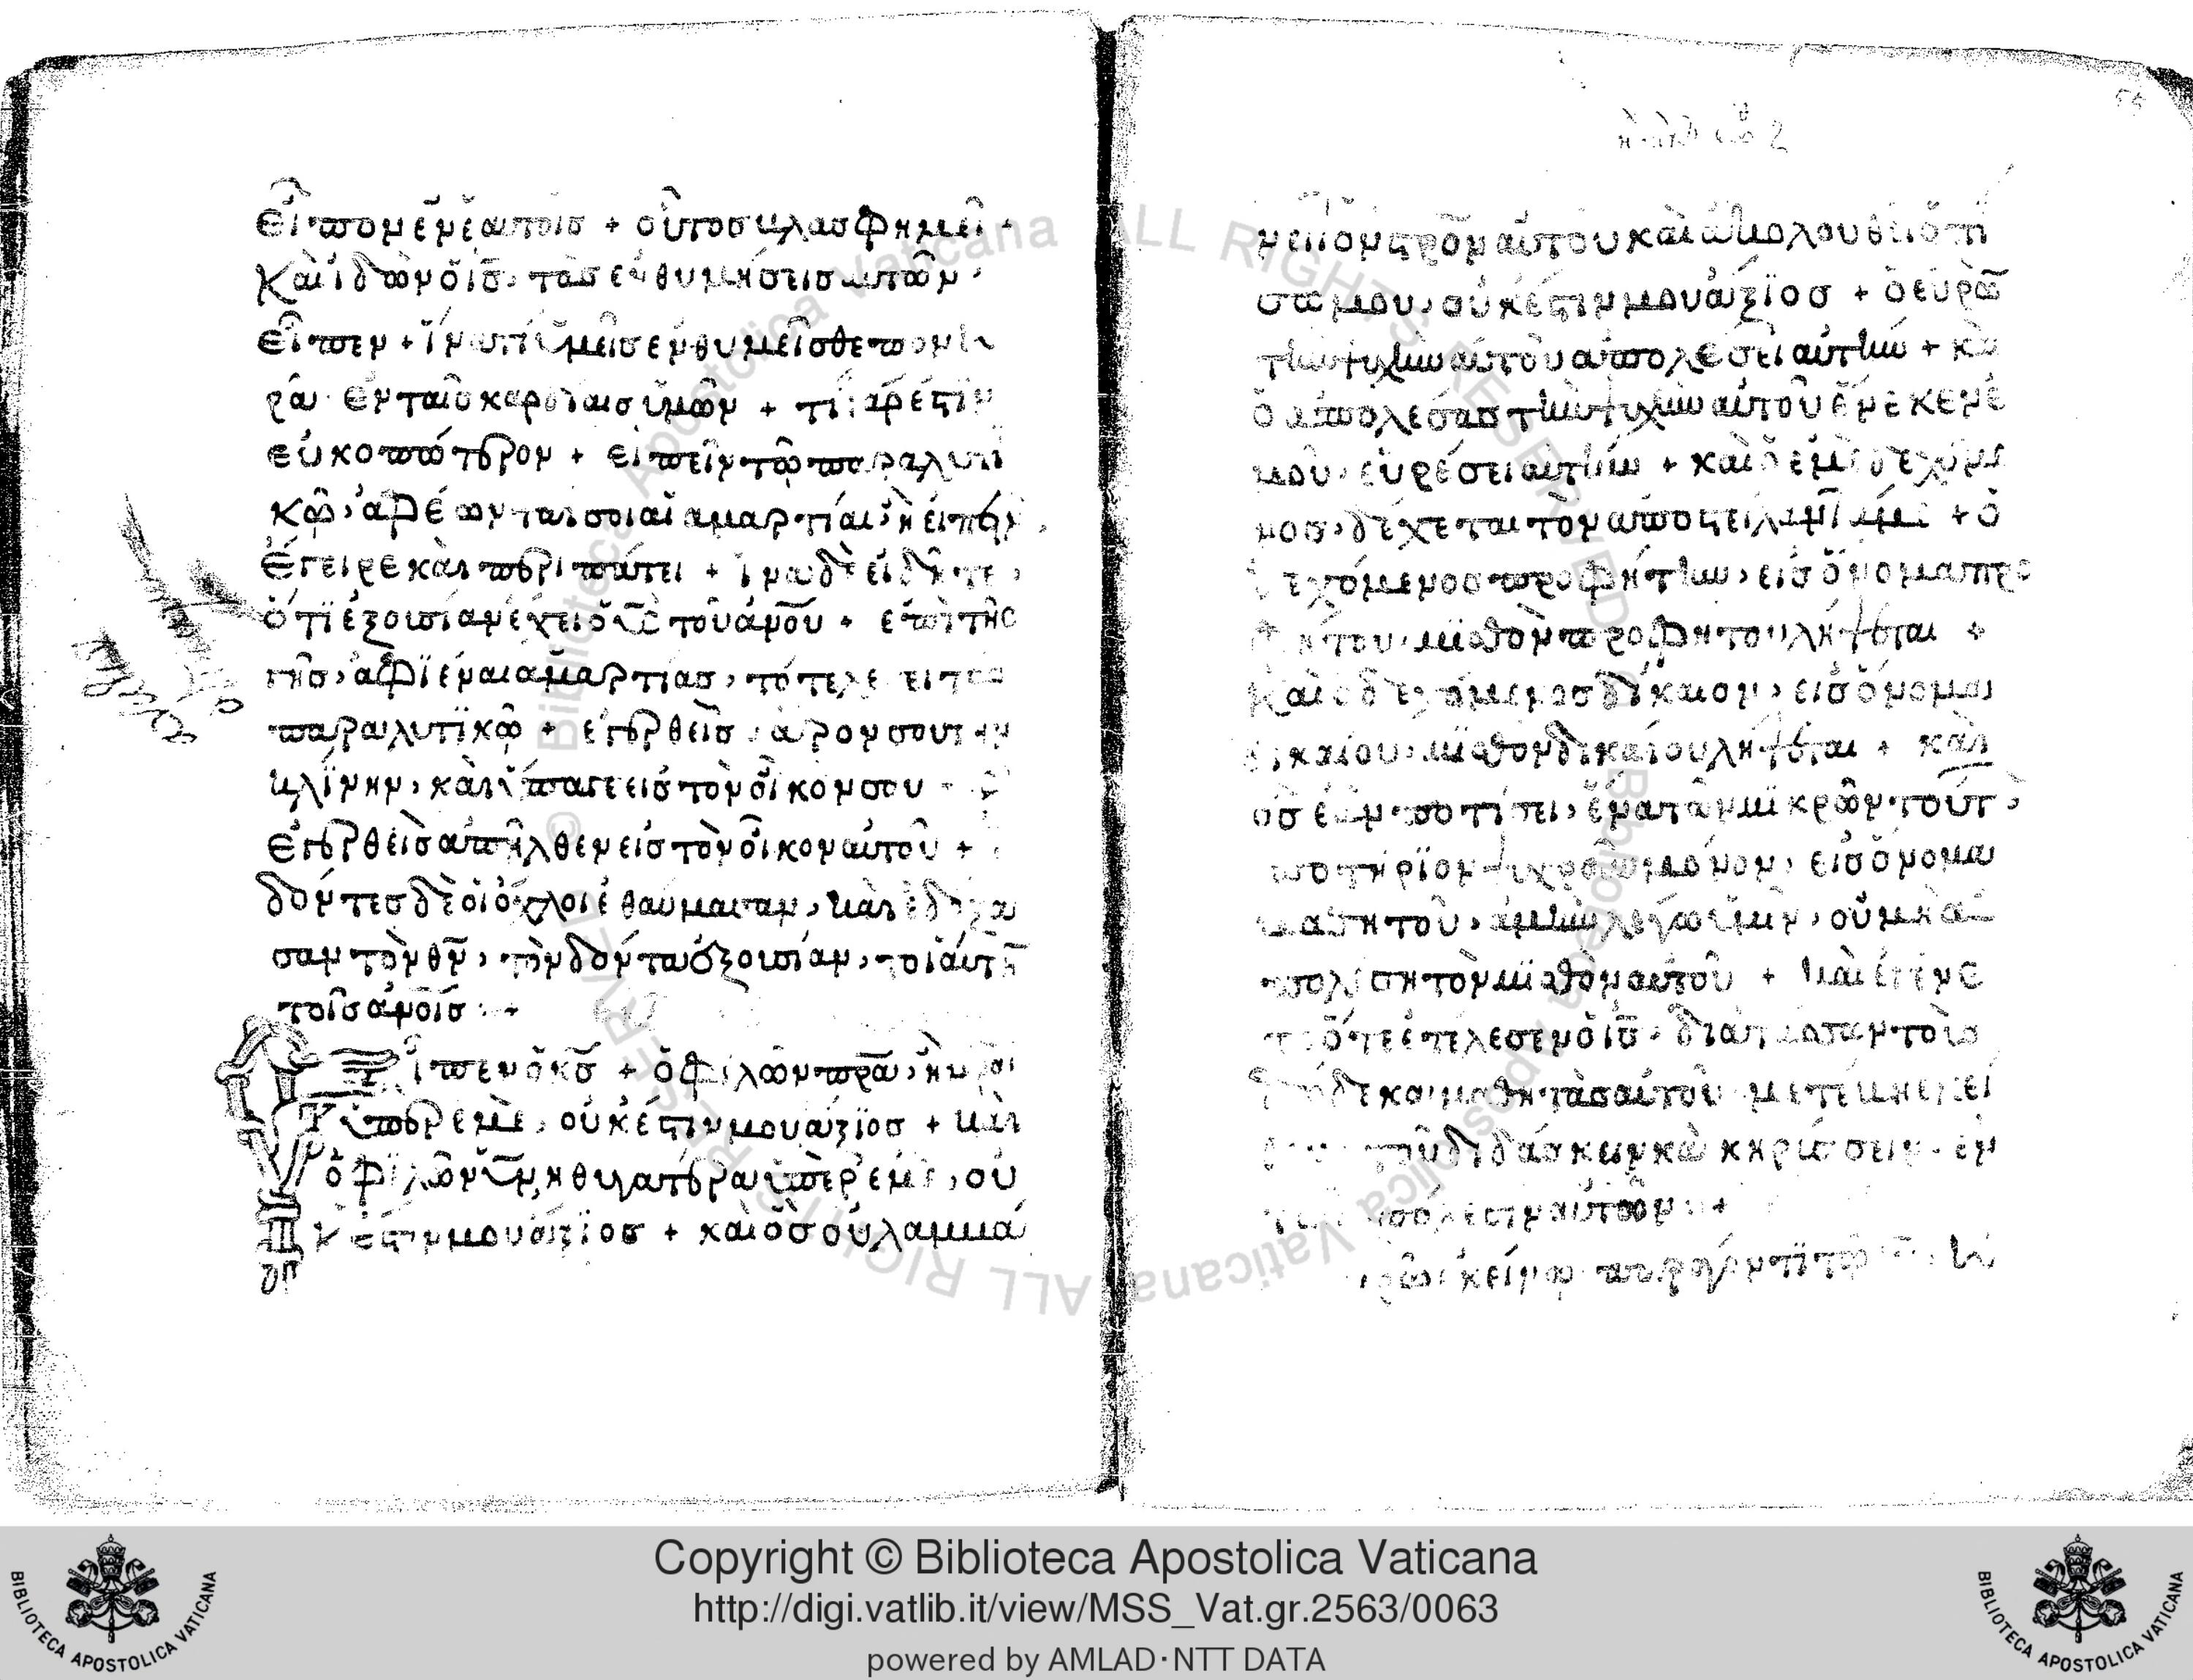 εἶπον ἐν ἑαυτοῖσ + οὗτοσ βλασφημεῖ +
καὶ ἰδὼν ὁ ἰσ, τὰσ ἐνθυμήσεισ αὐτῶν,
εἶπεν + ἵνατί ὑμεῖσ ἐνθυμεῖσθε πονη
ρά ἐν ταῖσ καρδίαισ ὑμῶν + τί γάρ ἐστϊν
εὐκοπώτερον + εἰπεῖν τῶ παραλυτι
κῶ, ἀφέωνταί σοι αἱ αμαρτίαι, ἢ εἰπεῖν,
ἔγειρε καὶ περιπάτει + ἵνα δὲ εἰδῆτε,
ὅτϊ ἐξουσίαν ἔχει ὁ υσ τοῦ ἀνου + ἐπὶ τῆσ
γῆσ, ἀφϊέναι αμαρτίασ, τότε λέγει τῶ
παραλυτϊκῶ + ἐγερθεὶσ ἆρόν σου τὴν
κλΐνην, καὶ ὕπαγε εἰσ τὸν οἶκον σου +
ἐγερθεὶσ ἀπῆλθεν εἰσ τὸν οἶκον αὐτοῦ + ἰ
δόντεσ δὲ οἱ ὄχλοι ἐθαύμασαν, καὶ ἐδόξα
σαν τὸν θν, τὸν δόντα ἐξουσίαν τοιαύτην
τοῖσ ἀνοισ +
Εἶπεν ὁ κσ + ὁ φιλῶν πρα, ἢ μρα
ὑπερ ἐμὲ, οὐκ ἔστιν μου ἄξϊοσ + καὶ
ὁ φϊλῶν υν, ἢ θυγατέρα ὑπὲρ ἐμὲ, οὐ
κ ἔστιν μου ἄξϊοσ + καὶ ὃσ οὐ λαμβά
νει τὸν στρον αὐτοῦ καὶ ἀκολουθεῖ ὀπί
σω μου, οὐκ ἔστιν μου ἄξϊοσ + ὁ εὑρὼν
τὴν ψυχὴν αὐτοῦ ἀπολέσει αὐτὴν + καὶ
ὁ ἀπολέσασ τὴν ψυχὴν αὐτοῦ ἕνεκεν ἐ
μοῦ, εὑρέσει αὐτὴν + καὶ ὁ ἐμὲ δεχόμε
νοσ, δέχεται τὸν ἀποστείλαντά με + ὁ
δεχόμενοσ προφήτην, εἰσ ὄνομα προ
φήτου, μϊσθὸν προφήτου λήψεται +
καὶ ὁ δεχόμενοσ δίκαιον, εἰσ ὄνομα
δικαίου, μϊσθὸν δικαίου λήψεται + καὶ
ὃσ ἐὰν ποτίσει, ἕνα τῶν μϊκρῶν τούτων,
ποτήρϊον ψυχροῦ μόνον, εἰσ ὄνομα
μαθητοῦ, ἀμὴν λέγω ὑμῖν, οὐ μὴ ἀ
πολέση τὸν μϊσθὸν αὐτοῦ + καὶ ἐγένε
το ὅτε ἐτέλεσεν ὁ ισ, διατάσσων τοῖσ
δώδεκα μαθητὰσ αὐτοῦ μετέβη ἐκεῖ
θεν τοῦ διδάσκειν καὶ κηρύσσειν ἐν
ταῖσ πόλεσιν αὐτῶν +
Copyright © Biblioteca Apostolica Vaticana
http://digi.vatlib.it/view/MSS_Vat.gr.2563/0063
powered by AMLAD·NTT DATA